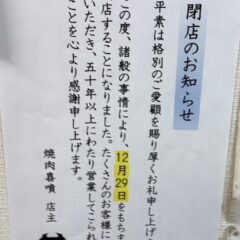 閉店のお知らせ
平素は格別のご愛顧を賜り厚くお礼申し上げ
この度、諸般の事情により、12月29日をもちま
店することになりました。たくさんのお客様に
いただき、五十年以上にわたり営業してこられ
ことを心より感謝申し上げます。
焼肉喜噴 店主